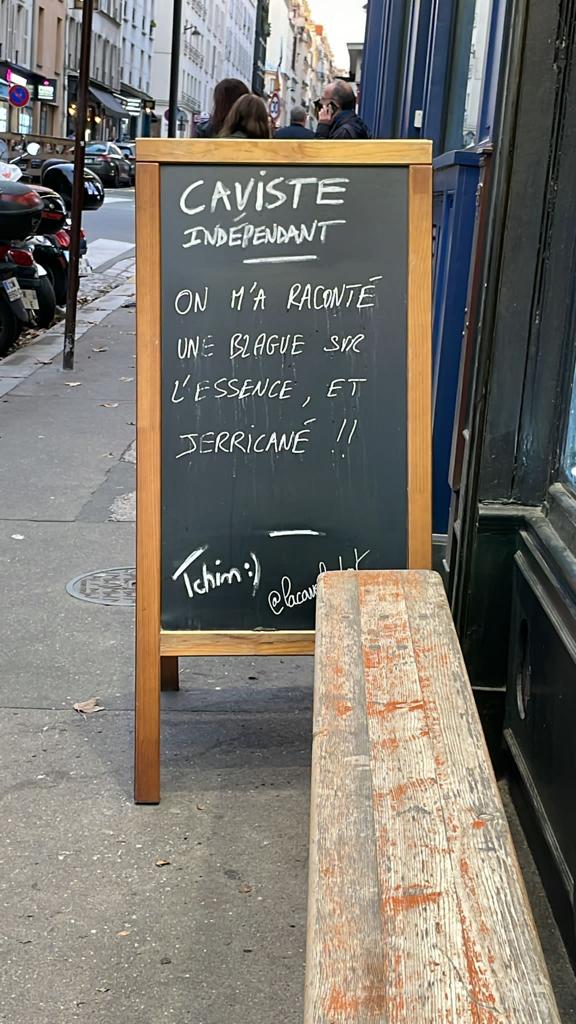 CAVISTE
INDÉPENDANT
ON M'A RACONTÉ
UNE BLAGUE SUR
L'ESSENCE, ET
JERRICANÉ !!
Tchin :)